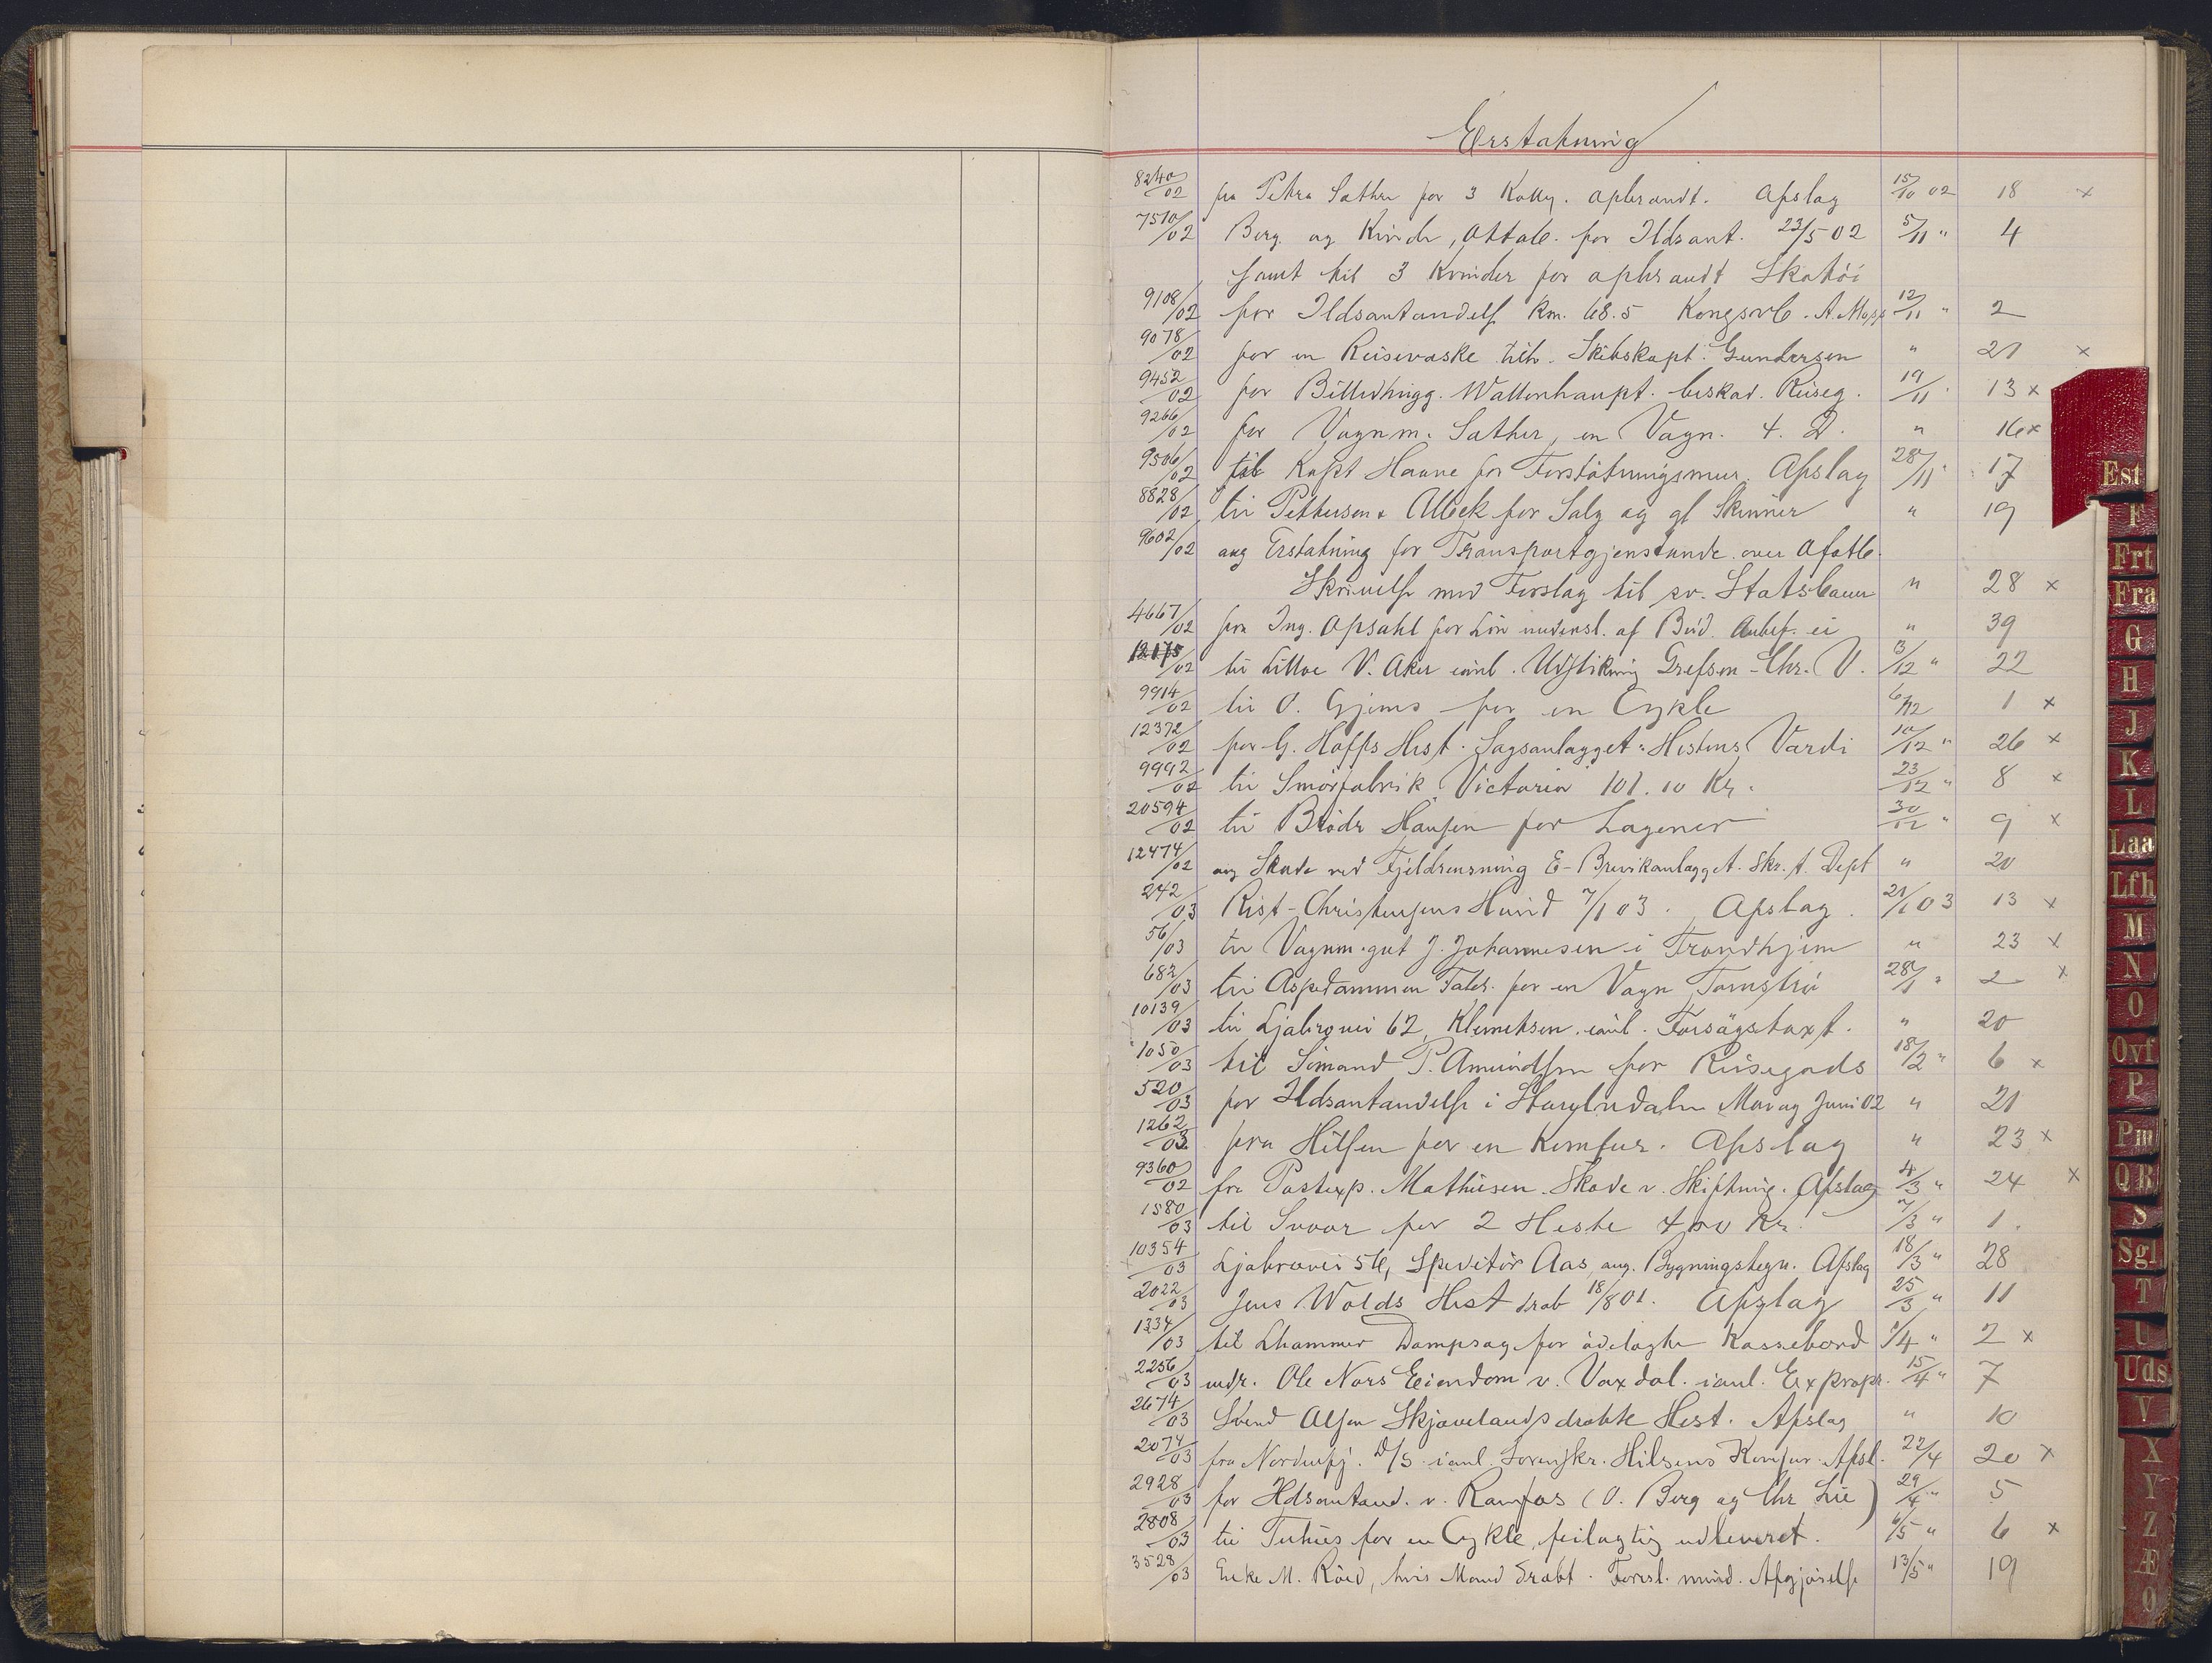 Erstatning
8240/02 fra Petra Sæther for 3 Kolly. opbrændt. Afslag 15/10 02 18 x
7510/02 Berg og Kinde, Attale. for Ildsant. 23/5 02 5/11 " 4
samt til 3 Kvinder for opbrændt Skotöi
9108/02 for Ildsantændelse Km. 68.5 Kongsvb. 12/11 " 2
9078/02 for en Reisevæske tilh. Skibskapt. Gundersen " 21 x
9452/02 for Billedhugg. Waltenhaupt. beskad. Reiseg. 19/11 " 13 x
9266/02 for Vognm. Sæther, en Vogn. 4. D. " 16 x
9506/02 til Kapt Haave for Forstötningsmur. Afslag 28/11 " 17
8828/02 til Pettersen & for Salg og gl Skinner " 19
9602/02 ang Erstatning for Transportgjenstande over
Skrivelse med Forslag til sv. Statsbaner " 28 x
4667/02 fra Ing. Opsahl for Lön undersl. af Bud. Anbef. ei " 39
12175/02 til Lilloe V. Aker eanl. Udstikning Grefsen - Chr. V. 3/12 " 22
9914/02 til O. Gjems for en Cykle 6/12 1 x
12372/02 for G. Hoffs Hest. Sagsanlægget: Hestens Værdi 10/12 " 26 x
9992/02 til Smörfabrik Victoria 101.10 Kr. 23/12 " 8 x
20594/02 til Brödr Hansen for Lagener 30/12 " 9 x
12474/02 ang Skade ved Fjeldrensning E-Brevikanlægget. Skr. t. Dept " 20
242/03 Rist-Christensens Hund 7/1 03. Afslag. 21/1 03 13 x
56/03 til Vognm.gut J. Johannesen i Trondhjem " 23 x
682/03 til Aspedammen Fabr. for en Vogn Torvströ 28/1 " 2 x
10139/03 til Ljabrovei 62, Klemetsen. eanl. Forsögstaxt. " 20
1050/03 til Simand P. Amundsen for Reisegods 18/2 " 6 x
520/03 for Ildsantændelse i Mai og Juni 02 " 21
1262/03 fra Hilsen for en Komfur. Afslag " 23 x
9360/02 fra Postexp. Mathiesen. Skade v. Skiftning. Afslag 4/3 " 24 x
1580/03 til Svaar for 2 Heste 400 Kr. 7/3 " 1.
10354/03 Ljabrovei 56, Speditör Aas, ang. Bygningstegn. Afslag 18/3 " 28
2022/03 Jens Wolds Hest dræb 18/8 01. Afslag 25/3 " 11
1334/03 til Lhammer Dampsag for ödelagte Kassebord 1/4 " 2 x
2256/03 vedr. Ole Nors Eiendom v. Vaxdal. ianl. Expropr. 15/4 " 7
2674/03 Svend Olsen Skjævelands dræbte Hest. Afslag " 10
2074/03 fra Nordenfj. D/S ianl. Sorenskr. Hilsens Komfur. Afsl. 22/4 20 x
2928/03 for Ildsantænd. v. Ramfos (O. Berg og Chr Lie) 29/4 " 5
2808/03 til for en Cykle, feilagtig udleveret. 6/5 " 6 x
3528/03 Enke M. Röed, hvis Mand dræbt. Foresl. mind. Afgjörelse 13/5 " 19
Est
F
Frt
Fra
G
H
J
K
L
Laa
Lfh
M
N
O
Ovf
P
Pm
QR
S
Sgl
T
U
Uds
V
X
Y
Z
Æ
Ø